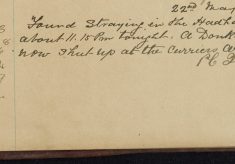 22nd May
Found Straying in the Hadh
about 11.15 Pm tonight. A Donk
now Shut up at the Curriers,
PC